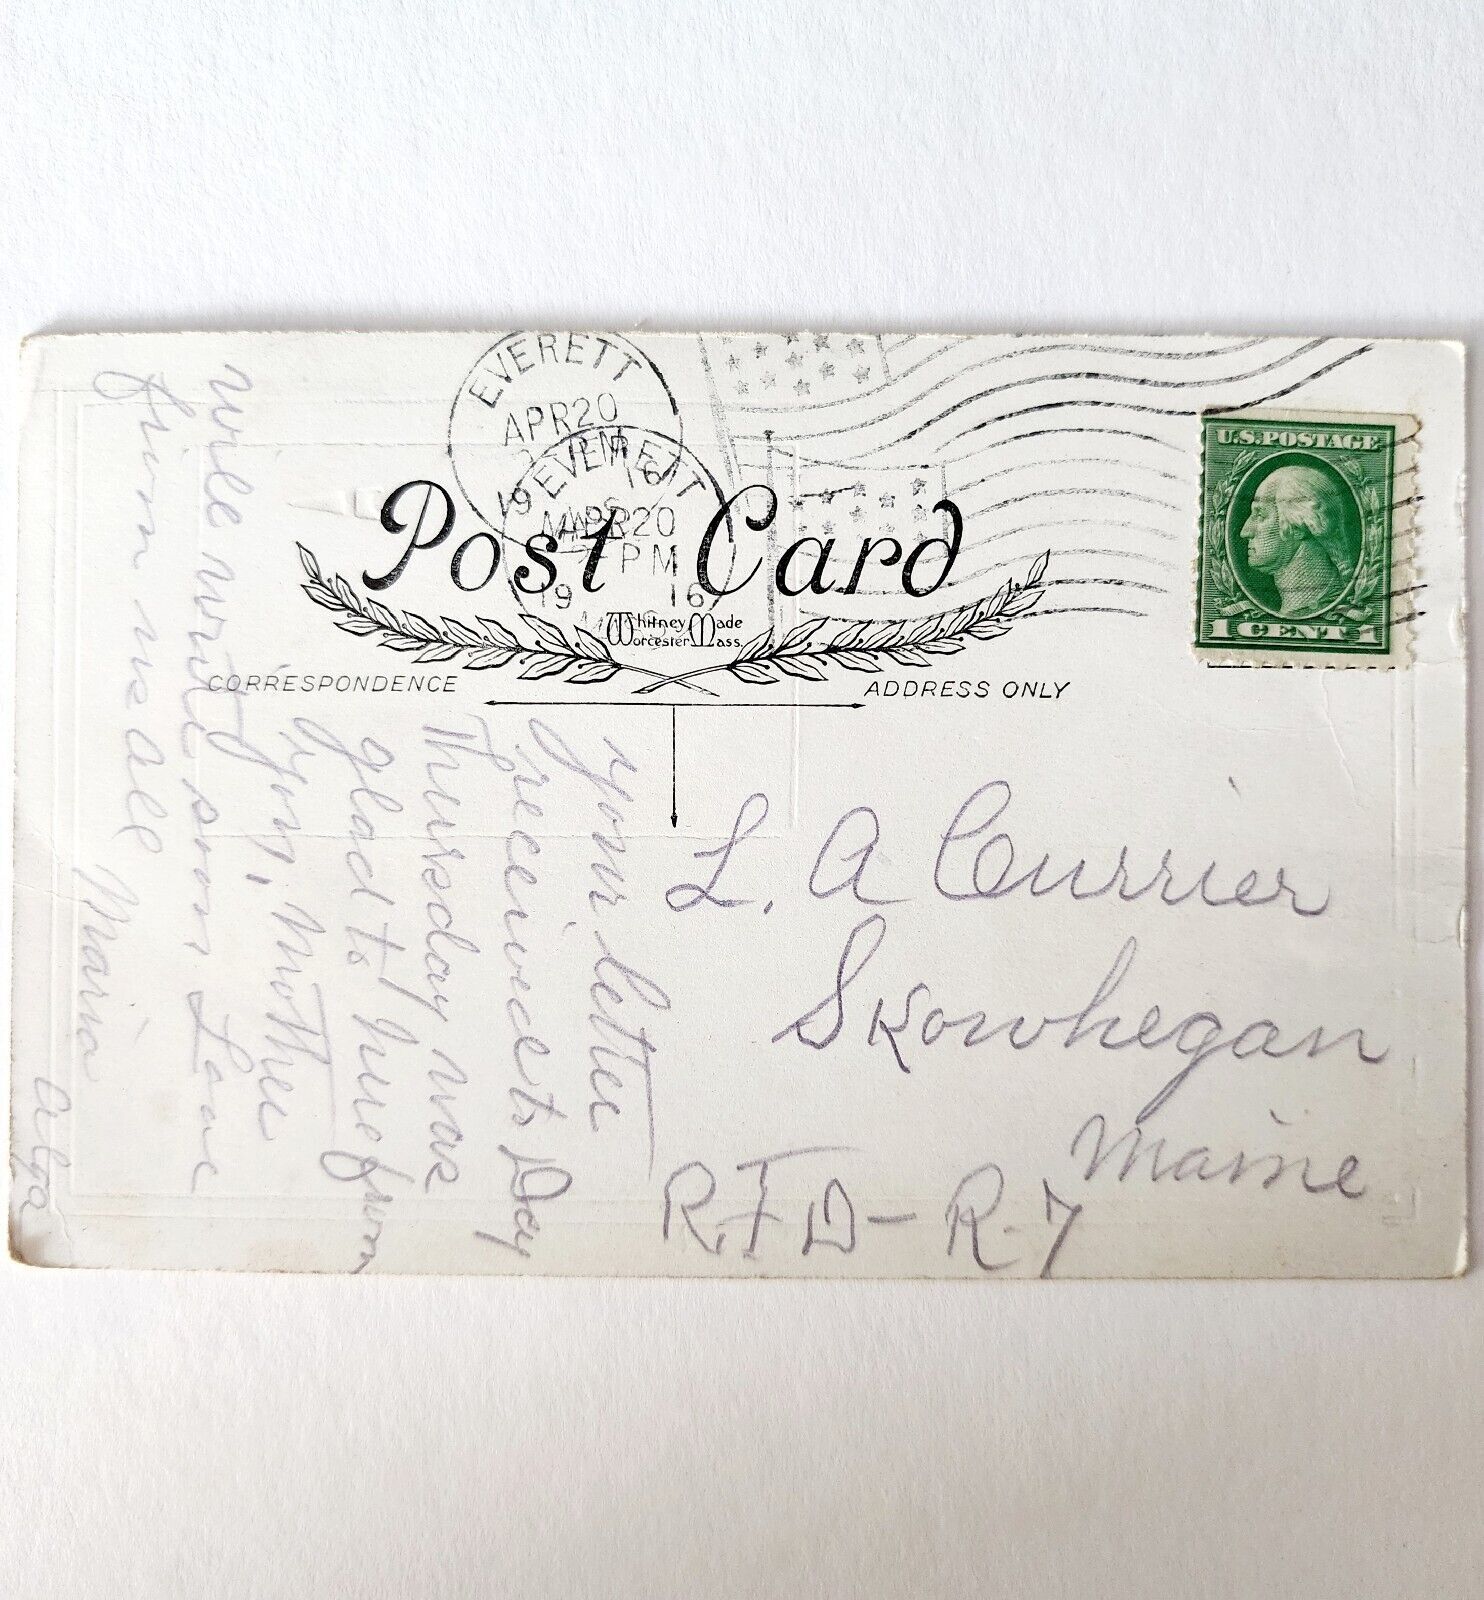 EVERETT
APR 20
19 16
EVERETT
APR 20
PM
19 16
MASS
U.S. POSTAGE
1 CENT 1
Post Card
Whitney Made
Worcester Mass.
CORRESPONDENCE
ADDRESS ONLY
your letter
received to Day
Thursday was
glad to here from
you, Mother
will write soon Love
from us all
Maria
L. A Currier
Skowhegan
Maine
R.F.D - R. 7